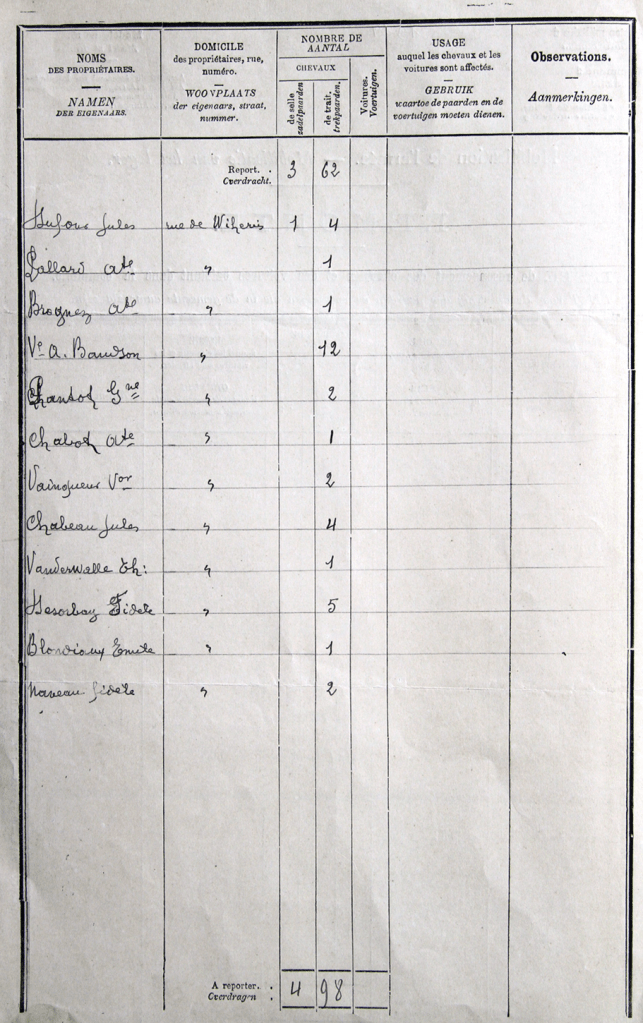 NOMS
DES PROPRIÉTAIRES.
NAMEN
DER EIGENAARS.
DOMICILE
des propriétaires, rue,
numéro.
WOONPLAATS
der eigenaars, straat,
nummer.
NOMBRE DE
AANTAL
CHEVAUX
de selle
zadelpaarden
de trait.
trekpaarden.
Voitures.
Voertuigen.
USAGE
auquel les chevaux et les
voitures sont affectés.
GEBRUIK
waartoe de paarden en de
voertuigen moeten dienen.
Observations.
Aanmerkingen.
Report. . 3 62
Overdracht.
Dufour Jules rue de Wiheries 1 4
Gallard Ate " 1
Brognez Ate " 1
Ve A. Baudson " 12
Chantot Gne " 2
Chabot Ate " 1
Vainqueur Vor " 2
Chabeau Jules " 4
Vanderwalle Th: " 1
Fidèle " 5
Blondiaux Emile " 1
Naveau Fidèle " 2
A reporter. . 4 98
Overdragen .